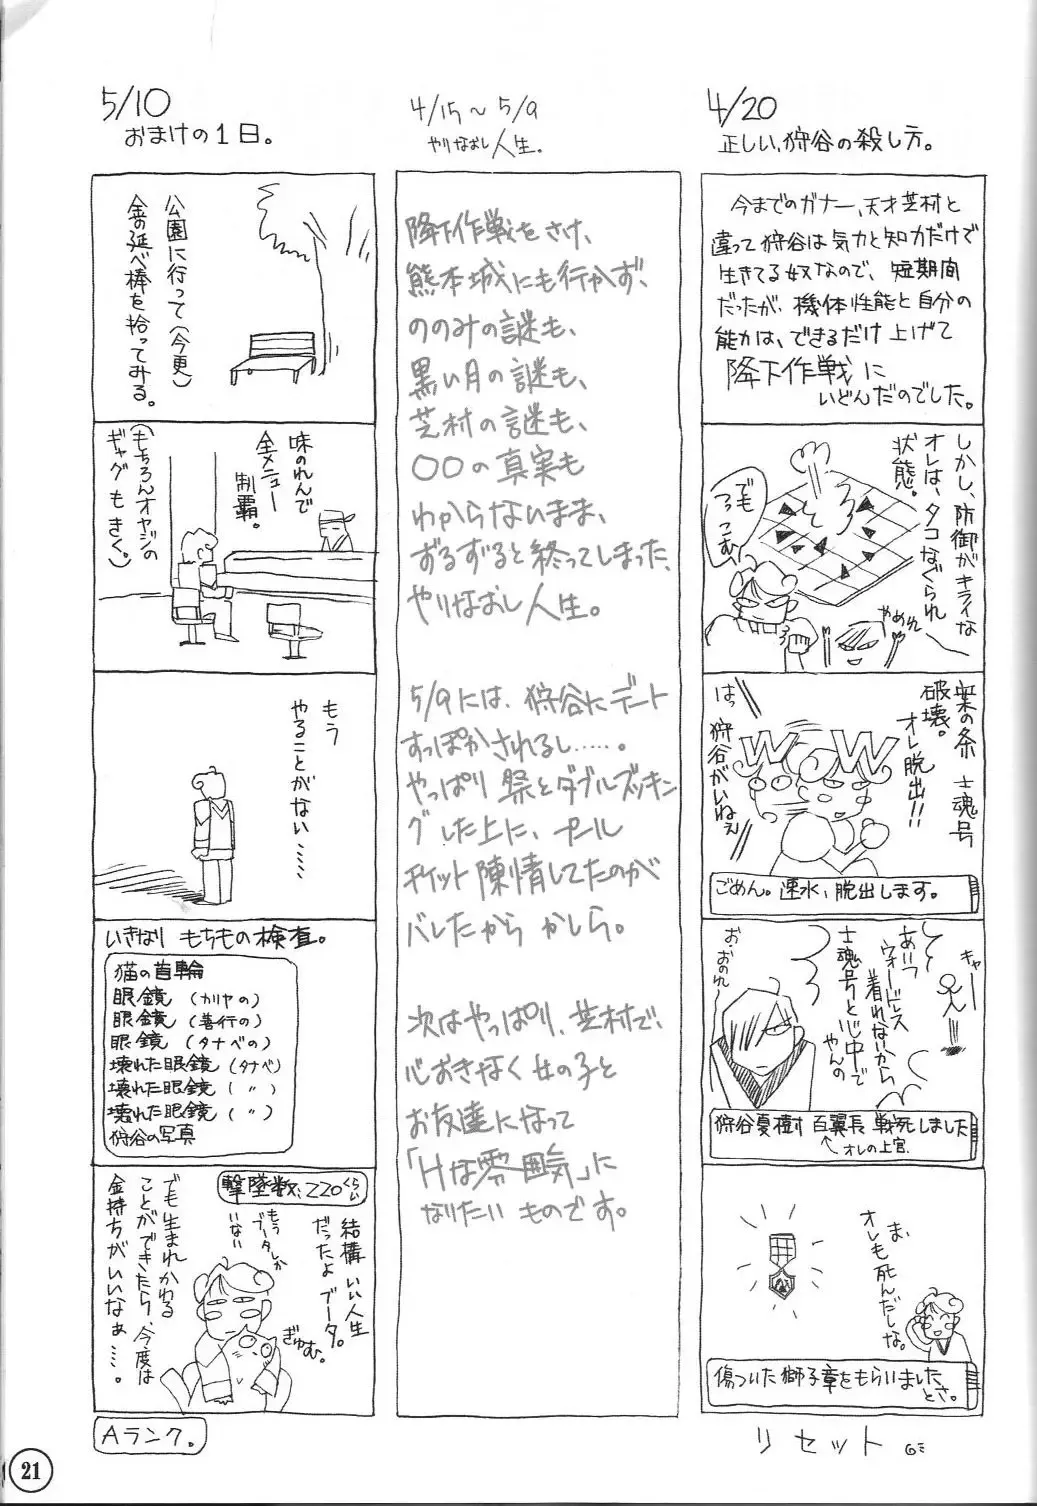 4/20
正しい、狩谷の殺し方。
今までのガナー、天才芝村と
違って狩谷は気力と知力だけで
生きてる奴なので、短期間
だったが、機体性能と自分の
能力は、できるだけ上げて
降下作戦に
いどんだのでした。
しかし、防御がキライな
オレは、タコなぐられ
状態。
でも
つっこむ
やめれ
案の条 士魂号
破壊。
オレ脱出!!
WWW
はっ
狩谷がいねえ
ごめん。速水、脱出します。
キャー
あいつ
ウォードレス
着れないから
士魂号といじ中で
やんの
お、おのれー
狩谷夏樹 百翼長 戦死しました
↑オレの上官
ま、
オレも死んだしな。
傷ついた獅子章をもらいました
とさ。
リセット
4/15～5/9
やりなおし人生。
降下作戦をさけ、
熊本城にも行かず、
ののみの謎も、
黒い月の謎も、
芝村の謎も、
○○の真実も
わからないまま、
ずるずると終ってしまった、
やりなおし人生。
5/9には、狩谷にデート
すっぽかされるし……。
やっぱり祭とダブルブッキン
グした上に、プール
チケット陳情してたのが
バレたから かしら。
次はやっぱり、芝村で、
心おきなく女の子と
お友達になって
「Hな雰囲気」に
なりたいものです。
5/10
おまけの1日。
公園に行って(今更)
金の延べ棒を拾ってみる。
味のれんで
全メニュー
制覇。
(もちろんオヤジの
ギャグもきく。)
もう
やることがない……
いきなり もちもの検査。
猫の首輪
眼鏡(カリヤの)
眼鏡(善行の)
眼鏡(タナベの)
壊れた眼鏡(タナベ)
壊れた眼鏡( 〃 )
壊れた眼鏡( 〃 )
狩谷の写真
撃墜数、220くらい
結構いい人生
だったよ ブータ。
もう
ブータしか
いない
ぎゅむ。
でも生まれかわる
ことができたら、今度は
金持ちがいいなぁ……。
Aランク。
21